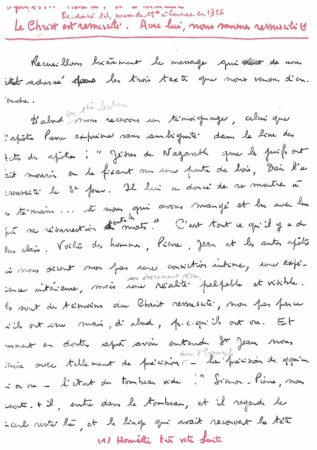 Le Christ est ressuscité. Avec lui, nous sommes ressuscités
Recueillons brièvement le message qui vient de nous
adressé dans les trois textes que nous venons d'en-
tendre.
en 1ère lecture
D'abord nous recevons un témoignage, celui que
l'apôtre Pierre exprime sans ambiguïté dans le livre des
Actes des apôtres : " Jésus de Nazareth que les juifs ont
fait mourir en le fixant sur une poutre de bois, Dieu l'a
ressuscité le 3e jour. Il lui a donné de se montrer à
témoins... à nous qui avons mangé et bu avec lui
après sa résurrection d'entre les morts." C'est tout ce qu'il y a de
plus clair. Voilà des hommes, Pierre, Jean et les autres apôtres
qui nous disent non pas une conviction intime, une expé-
un événement réel
rience intérieure, mais une réalité palpable et visible.
Ils sont des témoins du Christ ressuscité, non pas parce
qu'ils ont cru mais, d'abord, p.c.qu'ils ont vu. Et
comment en douter après avoir entendu St Jean nous
dans l'Evangile
décrire avec tellement de précision - la précision de quelqu'un
qui a vu - l'état du tombeau vide : " Simon-Pierre, nous
raconte-t-il, entre dans le tombeau, et il regarde le
linceul resté là, et le linge qui avait recouvert la tête
(1) Homélie très vite faite